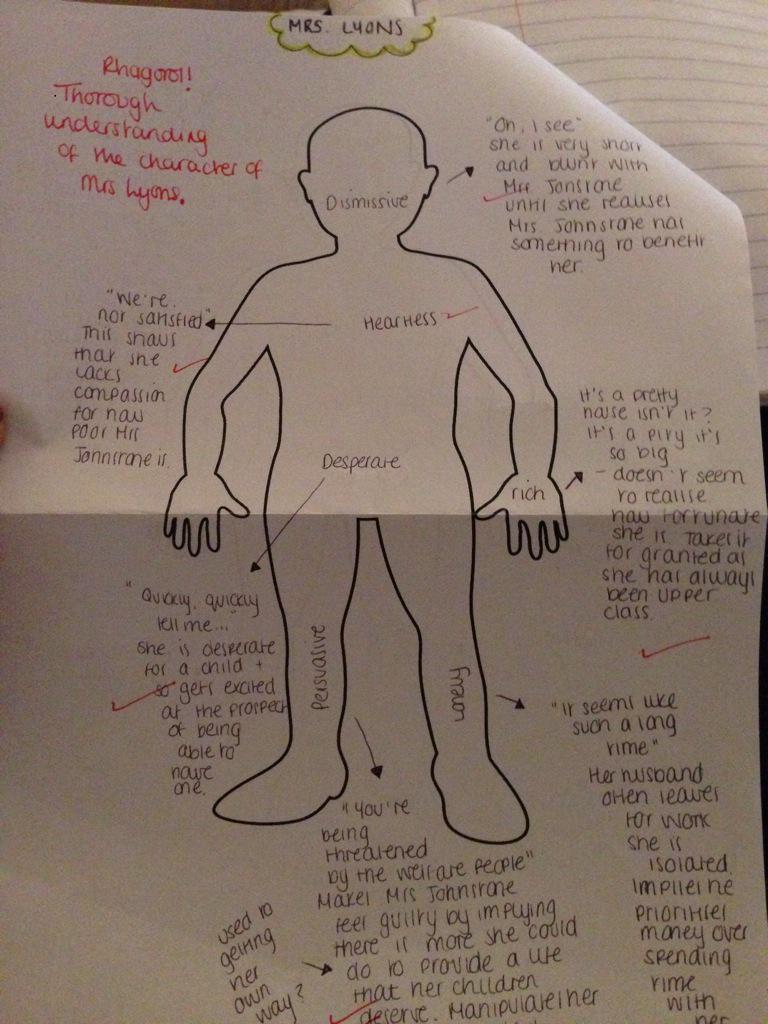 MRS. LYONS
Rhagorol!
Thorough
understanding
of the character of
Mrs Lyons.
Dismissive
"Oh, I see"
she is very short
and blunt with
Mrs Jonstone
until she realises
Mrs. Johnstone has
something to benefit
her.
"We're
not satisfied"
This shows
that she
lacks
compassion
for how
poor Mrs
Johnstone is.
Heartless
Desperate
rich
It's a pretty
house isn't it?
It's a pity it's
so big
- doesn't seem
to realise
how fortunate
she is. Takes it
for granted as
she has always
been upper
class.
"Quickly, quickly
tell me..."
she is desperate
for a child +
so gets excited
at the prospect
of being
able to
have
one.
Persuasive
lonely
"It seems like
such a long
time"
Her husband
often leaves
for work
she is
isolated.
Implies he
prioritises
money over
spending
time
with
her
"You're
being
threatened
by the welfare people"
Makes Mrs Johnstone
feel guilty by implying
there is more she could
do to provide a life
that her children
deserve. Manipulates her
used to
getting
her
own
way?